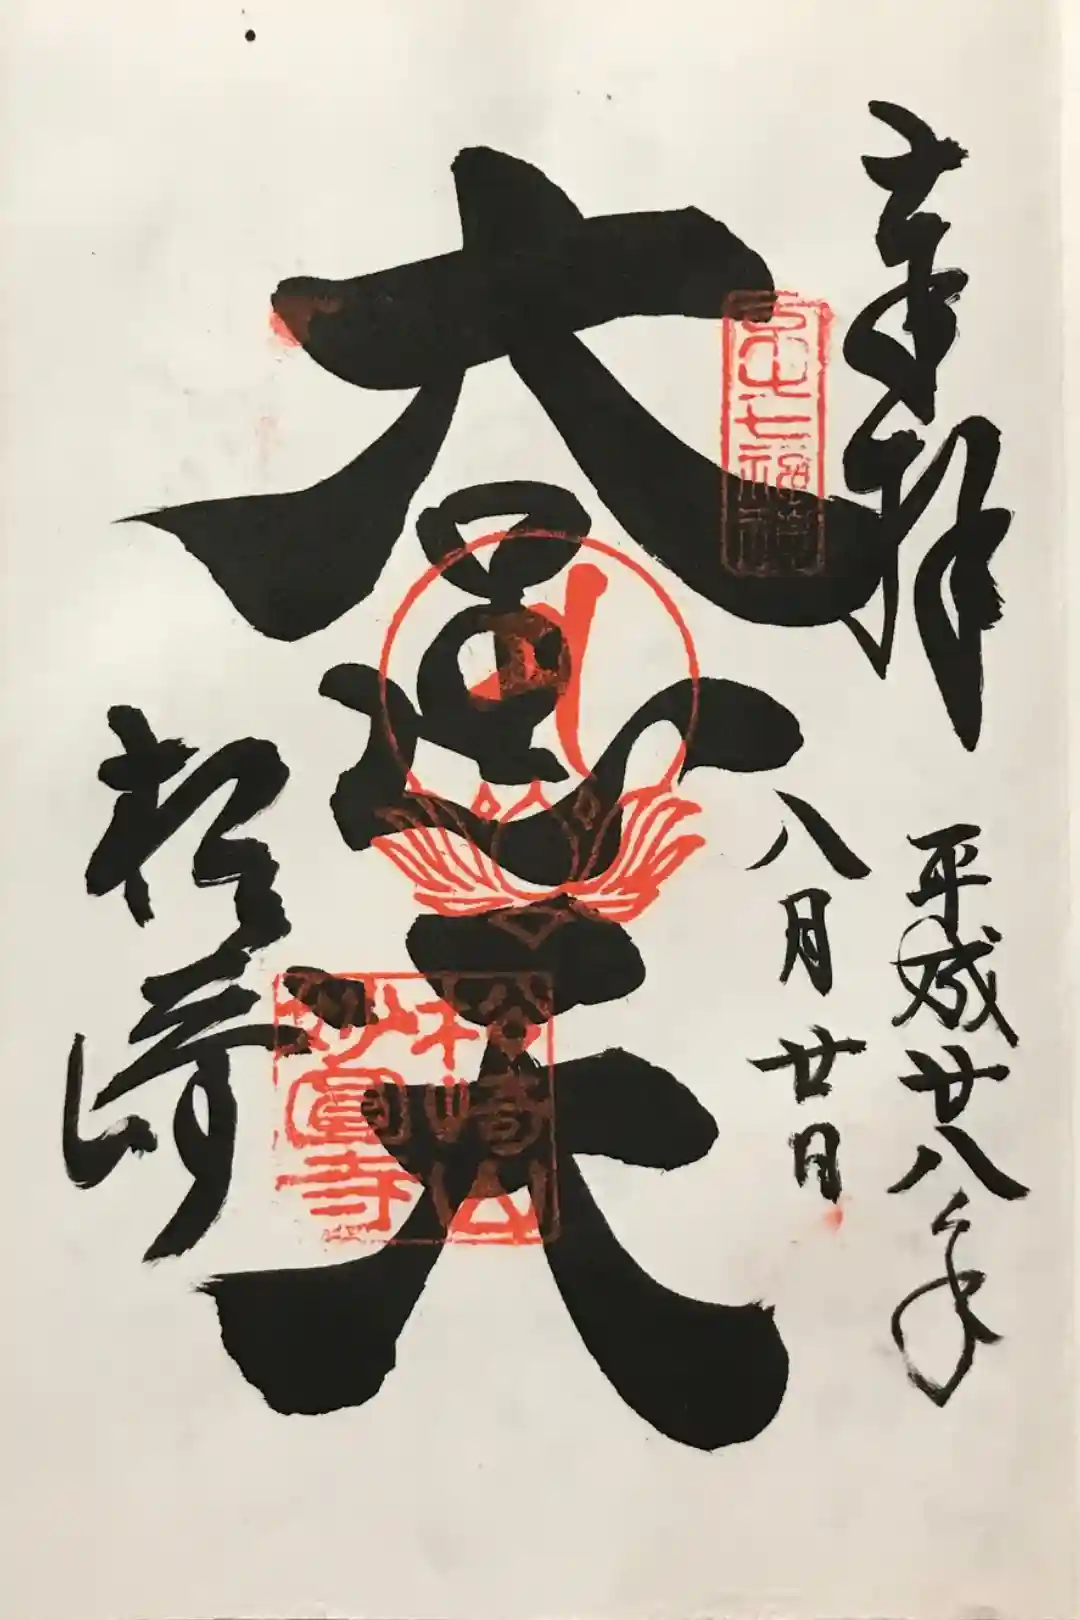 奉拝
平成廿八年
八月廿日
京都七福神
大黒天
松崎山
妙圓寺
松ヶ崎